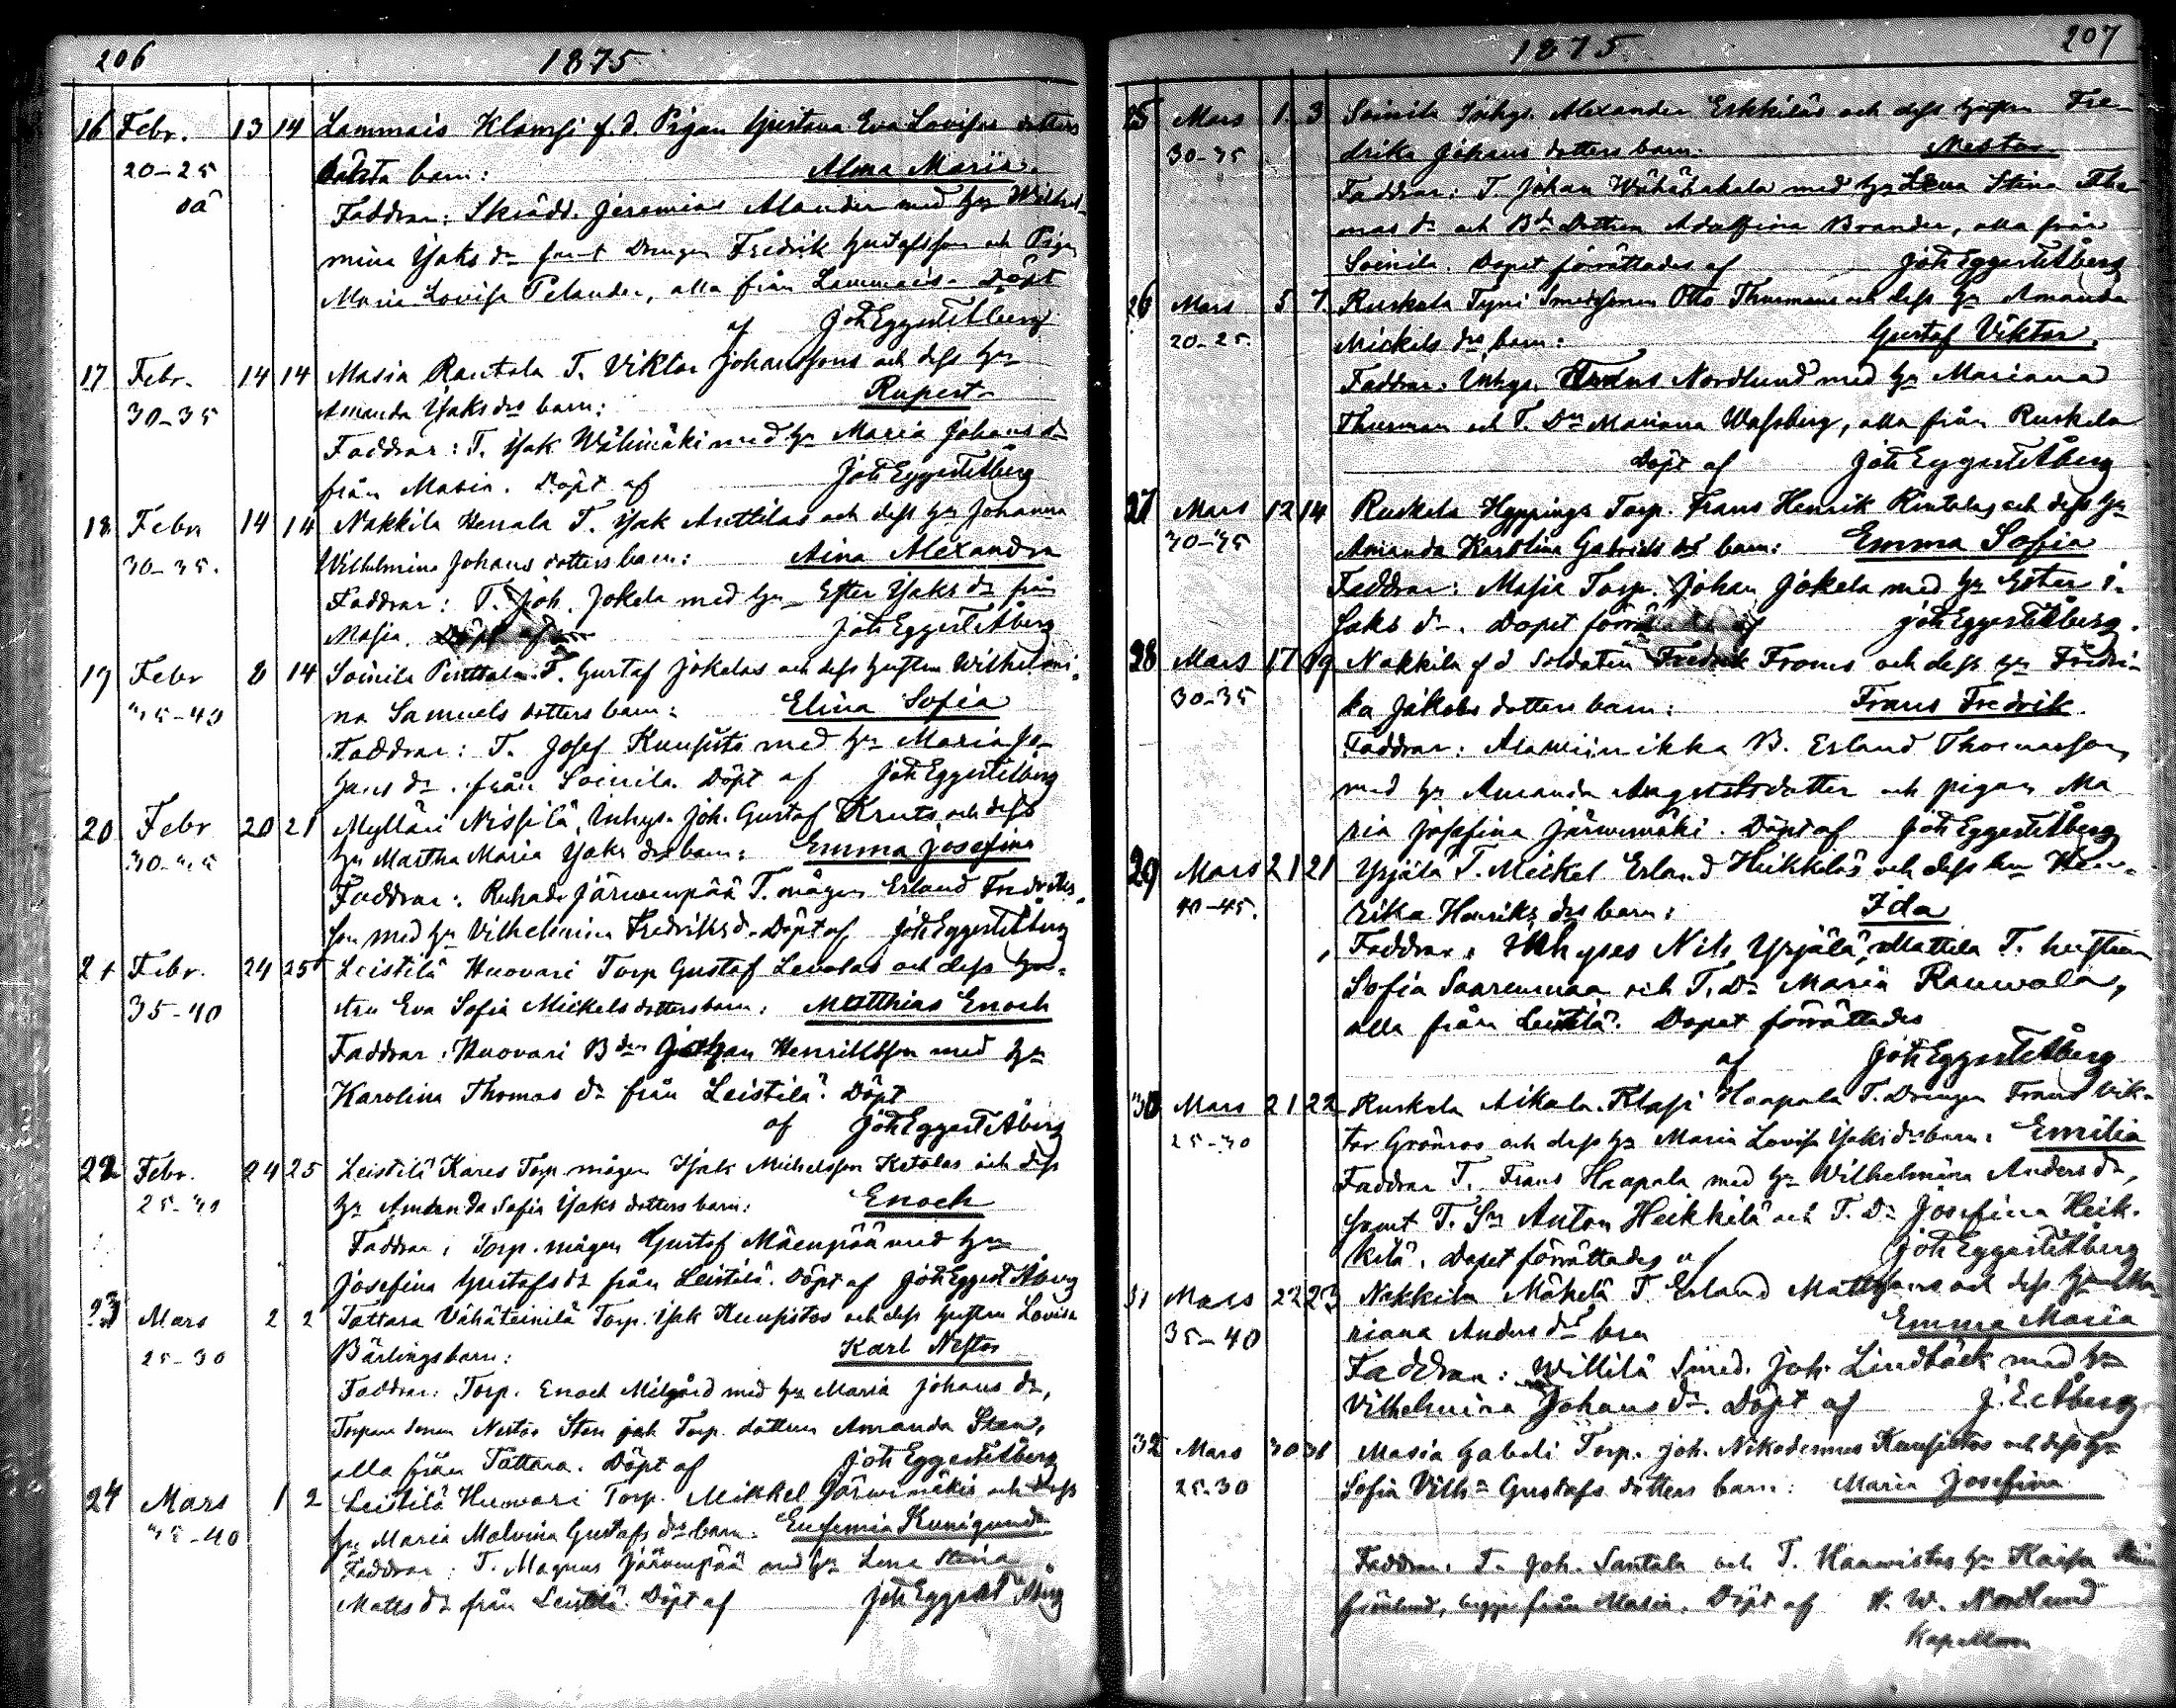 206
1875
16 Febr. 13 14 Lammais Klamsi f. d. Pigan Gustava Eva Lovisas dotters
20-25 oäkta barn: Alma Maria.
oä Faddrar: Skrädd. Jeremias Alander med hu Wilhel-
mina Isaks dr samt Drengen Fredrik Gustafsson och Pigan
Maria Lovisa Pelander, alla från Lammais. Döpt
af Joh Eggert Åberg
17 Febr. 14 14 Masia Rantala T. Viktor Johanssons och dess hu
30-35 Amanda Isaks drs barn: Rupert
Faddrar: T. Isak Wälimäki med hu Maria Johans dr
från Masia. Döpt af Joh Eggert Åberg
18 Febr 14 14 Nakkila Herrala T. Isak Anttilas och dess hu Johanna
30-35. Wilhelmina Johans dotters barn: Aina Alexandra
Faddrar: T. Joh. Jokela med hu Ester Isaks dr från
Masia. Döpt af Joh Eggert Åberg
19 Febr 8 14 Soinila Penttala T. Gustaf Jokelas och dess hustru Wilhelmi-
35-40 na Samuels dotters barn: Elina Sofia
Faddrar: T. Josef Kuusisto med hu Maria Jo-
hans dr. från Soinila. Döpt af Joh Eggert Åberg
20 Febr 20 21 Mylläri Nissilä, Inhys. Joh. Gustaf Kruts och dess
30-35 hu Martha Maria Isaks drs barn: Emma Josefina
Faddrar: Ruhade Järwenpää T. mågen Erland Fredriks-
son med hu Vilhelmina Fredriksd. Döpt af Joh Eggert Åberg
21 Febr. 24 25 Leistilä Huovari Torp Gustaf Levolas och dess hu-
35-40 stru Eva Sofia Mickels dotters barn: Matthias Enoch
Faddrar: Huovari Bden Johan Henriksson med hu
Karolina Thomas dr från Leistilä. Döpt
af Joh Eggert Åberg
22 Febr. 24 25 Leistilä Kares Torp. mågen Isak Michelsson Ketolas och dess
25-30 hu Amanda Sofia Isaks dotters barn: Enoch
Faddrar: Torp. mågen Gustaf Mäenpää med hu
Josefina Gustafs dr från Leistilä. Döpt af Joh Eggert Åberg
23 Mars 2 2 Tattara Vähäteinilä Torp. Isak Kuusistos och dess hustru Lovisa
25-30 Bärlings barn: Karl Nestor
Faddrar: Torp. Enoch Milgård med hu Maria Johans dr,
Torpare sonen Nestor Sten och Torp. dottern Amanda Sten,
alla från Tattara. Döpt af Joh Eggert Åberg
24 Mars 1 2 Leistilä Huovari Torp. Mikkel Järwimäkis och dess
35-40 hu Maria Malvina Gustafs drs barn: Eufemia Kunigunda
Faddrar: T. Magnus Järvenpää med hu Lena Stina
Matts dr från Leistilä. Döpt af Joh Eggert Åberg
1875
207
25 Mars 1 3 Soinila Inhys. Alexander Erkkiläs och dess hustru Fre-
30-35 drika Johans dotters barn: Nestor
Faddrar: T. Johan Wähähakala med hu Lena Stina Tho-
mas dr och Bds Dottern Adolfina Brander, alla från
Soinila. Dopet förrättades af Joh Eggert Åberg
26 Mars 5 7 Ruskela Tyni Smedsonen Otto Thurmans och dess hu Amanda
20-25. Mickels drs barn: Gustaf Viktor.
Faddrar: Inhys. Nordlund med hu Mariana
Thurman och T. Dn Mariana Wassberg, alla från Ruskela
Döpt af Joh Eggert Åberg
27 Mars 12 14 Ruskela Hyppings Torp. Frans Henrik Rintalas och dess hu
30-35 Amanda Karolina Gabriels drs barn: Emma Sofia
Faddrar: Masia Torp. Johan Jokela med hu Ester I-
saks dr. Dopet förrättades af Joh Eggert Åberg.
28 Mars 17 19 Nakkila f d Soldaten Fredrik Froms och dess hu Fredri-
30-35 ka Jakobs dotters barn: Frans Fredrik.
Faddrar: Alawiinikka B. Erland Thomasson
med hu Amanda Augustsdotter och pigan Ma
ria Josefina Järwenmäki. Döpt af Joh Eggert Åberg
29 Mars 21 21 Yrjälä T. Meikel Erland Heikkiläs och dess hu Hen-
40-45. rika Henriks drs barn: Ida
Faddrar: Inhyses Nils Yrjälä, Mattila T. hustrun
Sofia Saarenmaa och T. Dr Maria Rauwola,
alla från Leistilä. Dopet förrättades
af Joh Eggert Åberg
30 Mars 21 22 Ruskela Aikala Klasi Haapala T. Drengen Frans Vik-
25-30 tor Grönros och dess hu Maria Lovisa Isaks drs barn: Emilia
Faddrar T. Frans Haapala med hu Wilhelmina Anders dr,
samt T. Sn Anton Heikkilä och T. Dr Josefina Heik-
kilä. Dopet förrättades af Joh Eggert Åberg
31 Mars 22 23 Nakkila Mäkelä T. Erland Mattssons och dess hu Ma-
35-40 riana Anders drs barn Emma Maria
Faddrar: Willilä Smed. Joh. Lindbäck med hu
Vilhelmina Johans dr. Döpt af J. E. Åberg
32 Mars 30 31 Masia Gabeli Torp. Joh. Nikodemus Kuusistos och dess hu
25-30 Sofia Vilhna Gustafs dotters barn: Maria Josefina
Faddrar: T. Joh. Santala och T. Haawistos hu Kaisa Stina
Grönlund, bägge från Masia. Döpt af N. W. Nordlund
Kapellan